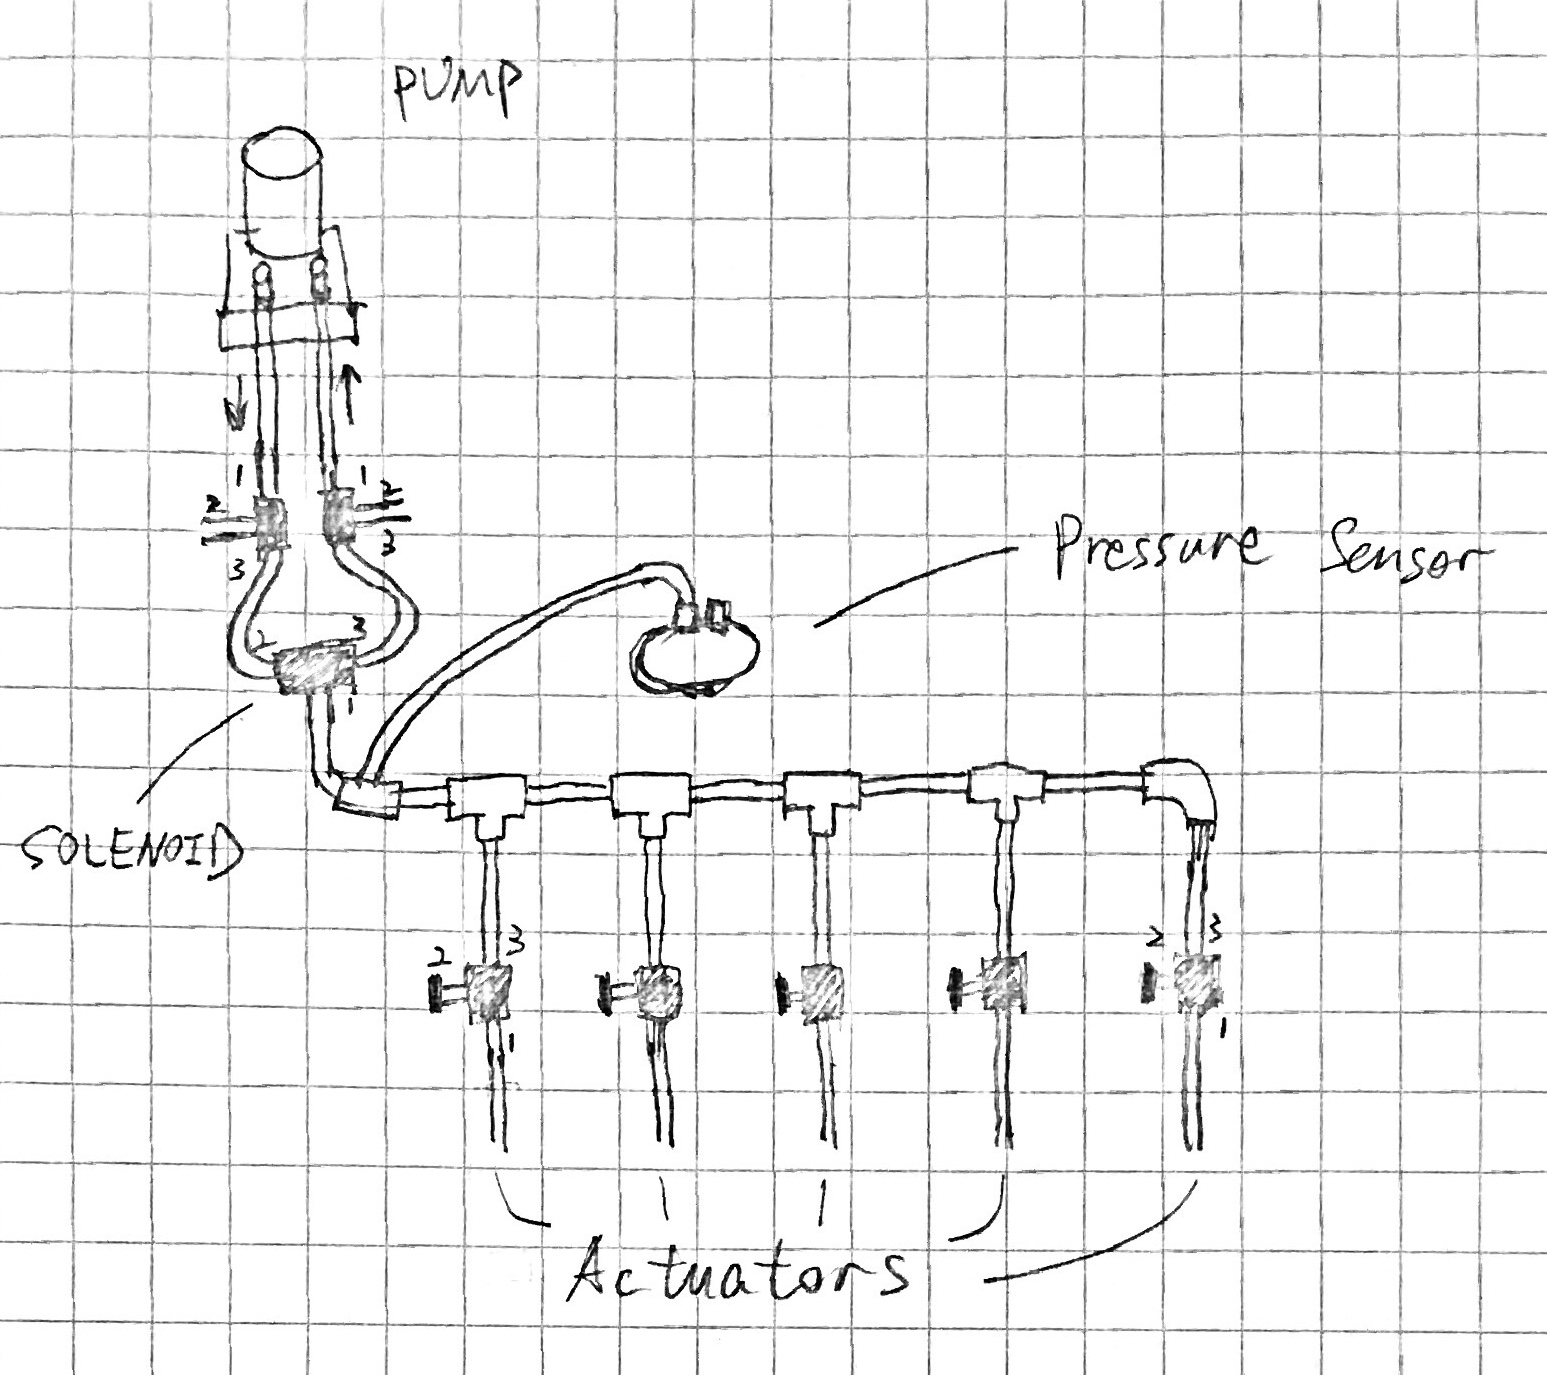 PUMP
1 1
2 2
3 3
Pressure Sensor
2 3
1
SOLENOID
2 3 2 3
1 1
Actuators